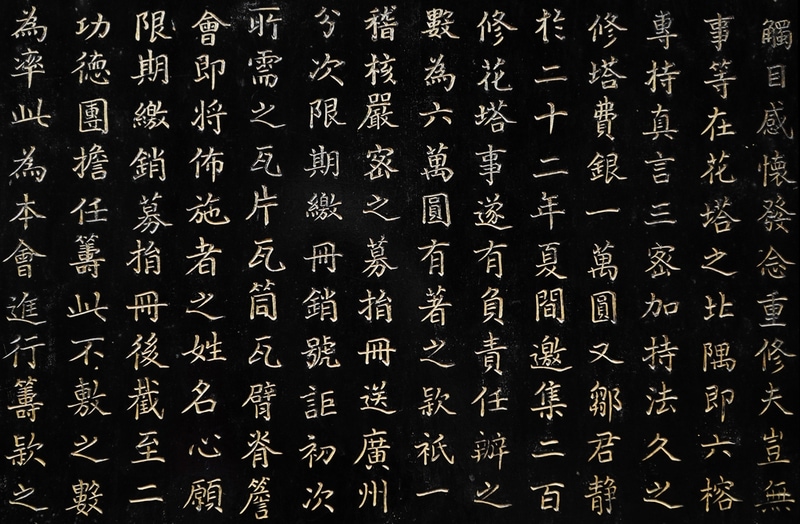 觸目感懷發念重修夫豈無
事等在花塔之北隅即六榕
專持真言三密加持法久之
修塔費銀一萬圓又鄒君静
於二十二年夏間邀集二百
修花塔事遂有負責任辦之
數為六萬圓有著之款祇一
稽核嚴密之募捐冊送廣州
分次限期繳冊銷號詎初次
所需之瓦片瓦筒瓦臂脊簷
會即将佈施者之姓名心願
限期繳銷募捐冊後截至二
功德團擔任籌此不敷之數
為率此為本會進行籌款之